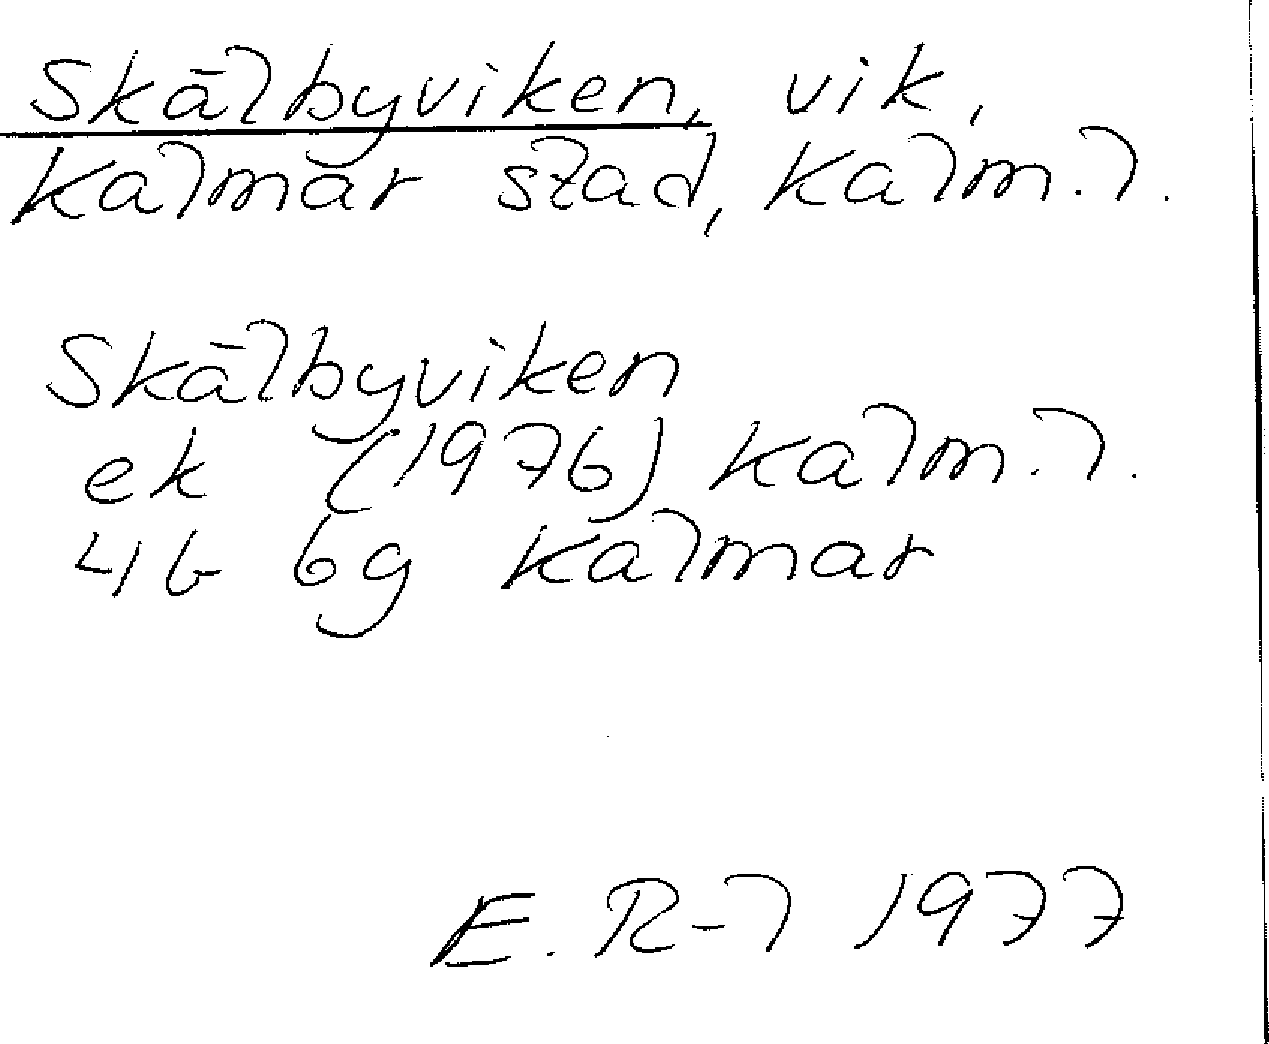 Skälbyviken, vik,
Kalmar stad, Kalm. l.
Skälbyviken
ek (1976) Kalm. l.
4G 6g Kalmar
E. R-l 1977